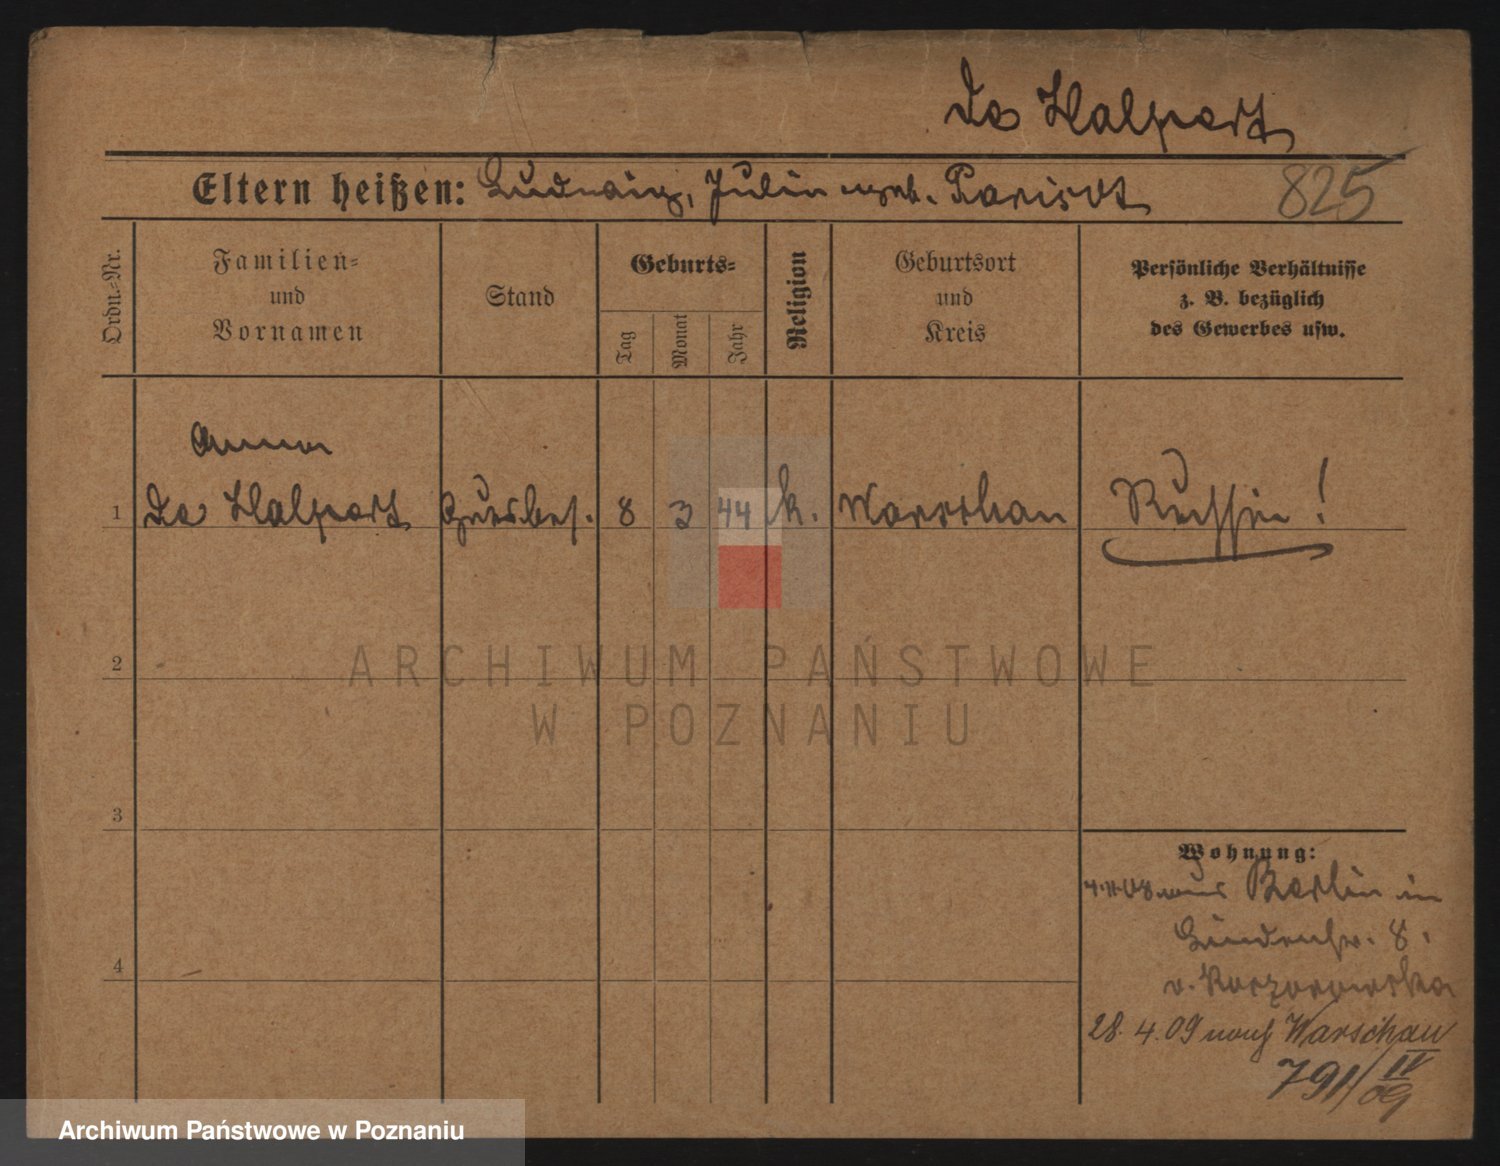 De Halpert
Eltern heißen: Ludwig, Julia geb. Parisot 825
Ordn.-Nr.
Familien=
und
Vornamen
Stand
Geburts=
Tag
Monat
Jahr
Religion
Geburtsort
und
Kreis
Persönliche Verhältnisse
z. B. bezüglich
des Gewerbes usw.
Anna
1 De Halpert Gutsbes. 8 3 44 k. Warschau Russin!
ARCHIWUM PAŃSTWOWE
W POZNANIU
2
3
4
Wohnung:
aus Berlin in
Lindenstr. 8.
v.
28. 4. 09 nach Warschau
791/IV 09
Archiwum Państwowe w Poznaniu